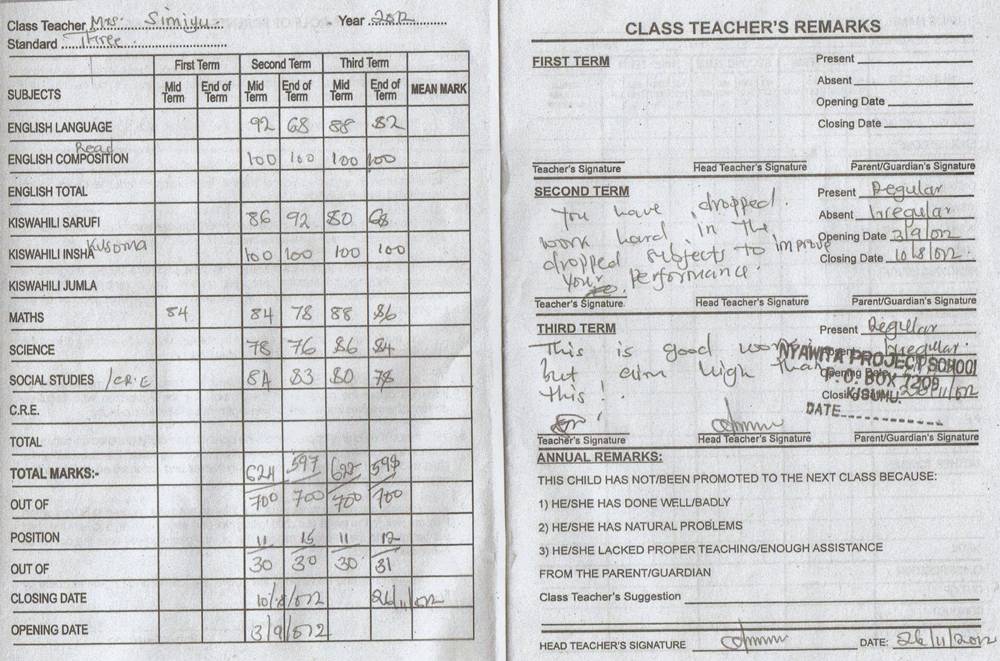 Class Teacher Mrs. Simiyu Year 2012
Standard Three
SUBJECTS First Term Second Term Third Term MEAN MARK
Mid Term End of Term Mid Term End of Term Mid Term End of Term
ENGLISH LANGUAGE 92 68 88 82
Read
ENGLISH COMPOSITION 100 100 100 100
ENGLISH TOTAL
KISWAHILI SARUFI 86 92 80 68
KISWAHILI INSHA Kusoma 100 100 100 100
KISWAHILI JUMLA
MATHS 84 84 78 88 86
SCIENCE 78 76 86 84
SOCIAL STUDIES /C.R.E 84 83 80 78
C.R.E.
TOTAL
TOTAL MARKS:- 624 597 622 598
OUT OF 700 700 700 700
POSITION 11 15 11 12
OUT OF 30 30 30 31
CLOSING DATE 10/8/012 26/11/012
OPENING DATE 3/9/012
CLASS TEACHER'S REMARKS
FIRST TERM
Present
Absent
Opening Date
Closing Date
Teacher's Signature Head Teacher's Signature Parent/Guardian's Signature
SECOND TERM
You have dropped.
work hard in the
dropped subjects to improve
your performance.
Present Regular
Absent Irregular
Opening Date 3/9/012
Closing Date 10/8/012.
Teacher's Signature Head Teacher's Signature Parent/Guardian's Signature
THIRD TERM
This is good work
but aim high than
this!
Present Regular
Irregular.
Opening Date
Closing 26/11/012
NYAWITA PROJECT SCHOOL
P. O. BOX 7209
KISUMU.
DATE
Teacher's Signature Head Teacher's Signature Parent/Guardian's Signature
ANNUAL REMARKS:
THIS CHILD HAS NOT/BEEN PROMOTED TO THE NEXT CLASS BECAUSE:
1) HE/SHE HAS DONE WELL/BADLY
2) HE/SHE HAS NATURAL PROBLEMS
3) HE/SHE LACKED PROPER TEACHING/ENOUGH ASSISTANCE
FROM THE PARENT/GUARDIAN
Class Teacher's Suggestion
HEAD TEACHER'S SIGNATURE DATE: 26/11/2012